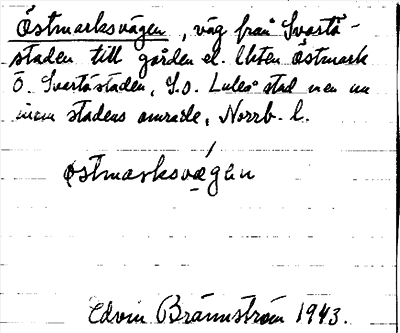 Östmarksvägen, väg från Svartö-
staden till gården el. lhten Östmark
Ö. Svartöstaden, S.o. Luleå stad men nu
inom stadens område, Norrb. l.
østmarksvægən
Edvin Brännström 1943.